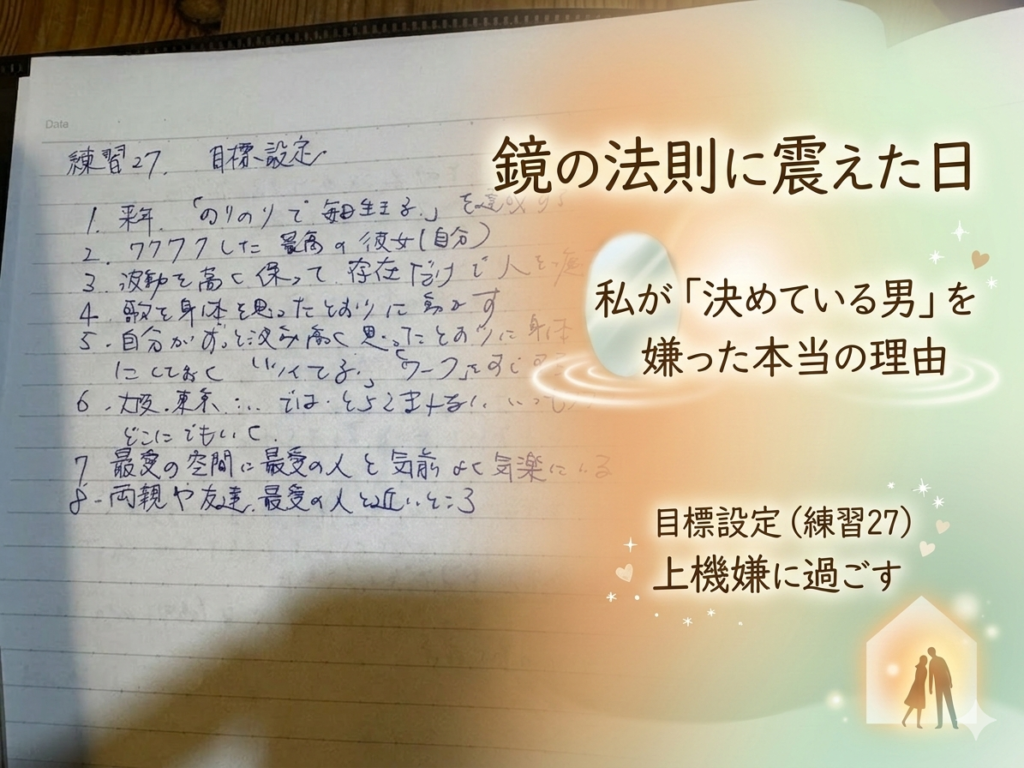 Date
練習27. 目標設定
1. 来年、「のりのりで毎日生きる」を達成する
2. ワクワクした最高の彼女(自分)
3 波動を高く保って、存在だけで人を
4. 歌を身体を思ったとおりに動かす
5. 自分がずっと 高く思ったとおりに身体
にしておく 「ツイてる」「ワーク」をす
6. 大阪、東京 では、とらえきれない、いつでも
どこにでもいく。
7 最愛の空間に最愛の人と気前よく気楽にいる
8-両親や友達、最愛の人と近いところ
鏡の法則に震えた日
私が「決めている男」を
嫌った本当の理由
目標設定（練習27）
上機嫌に過ごす